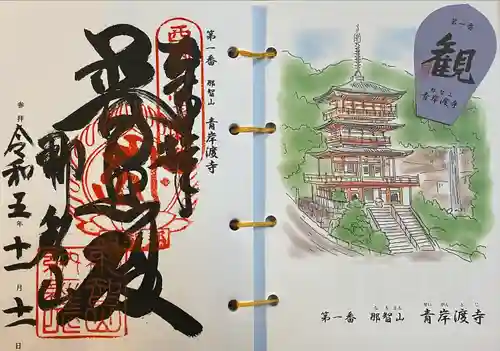 第一番 那智山 青岸渡寺
奉拝
普照殿
那智山
参拝 令和五年十一月十一日
第一番
観
青岸渡寺
なちさん せいがんとじ
第一番 那智山 青岸渡寺